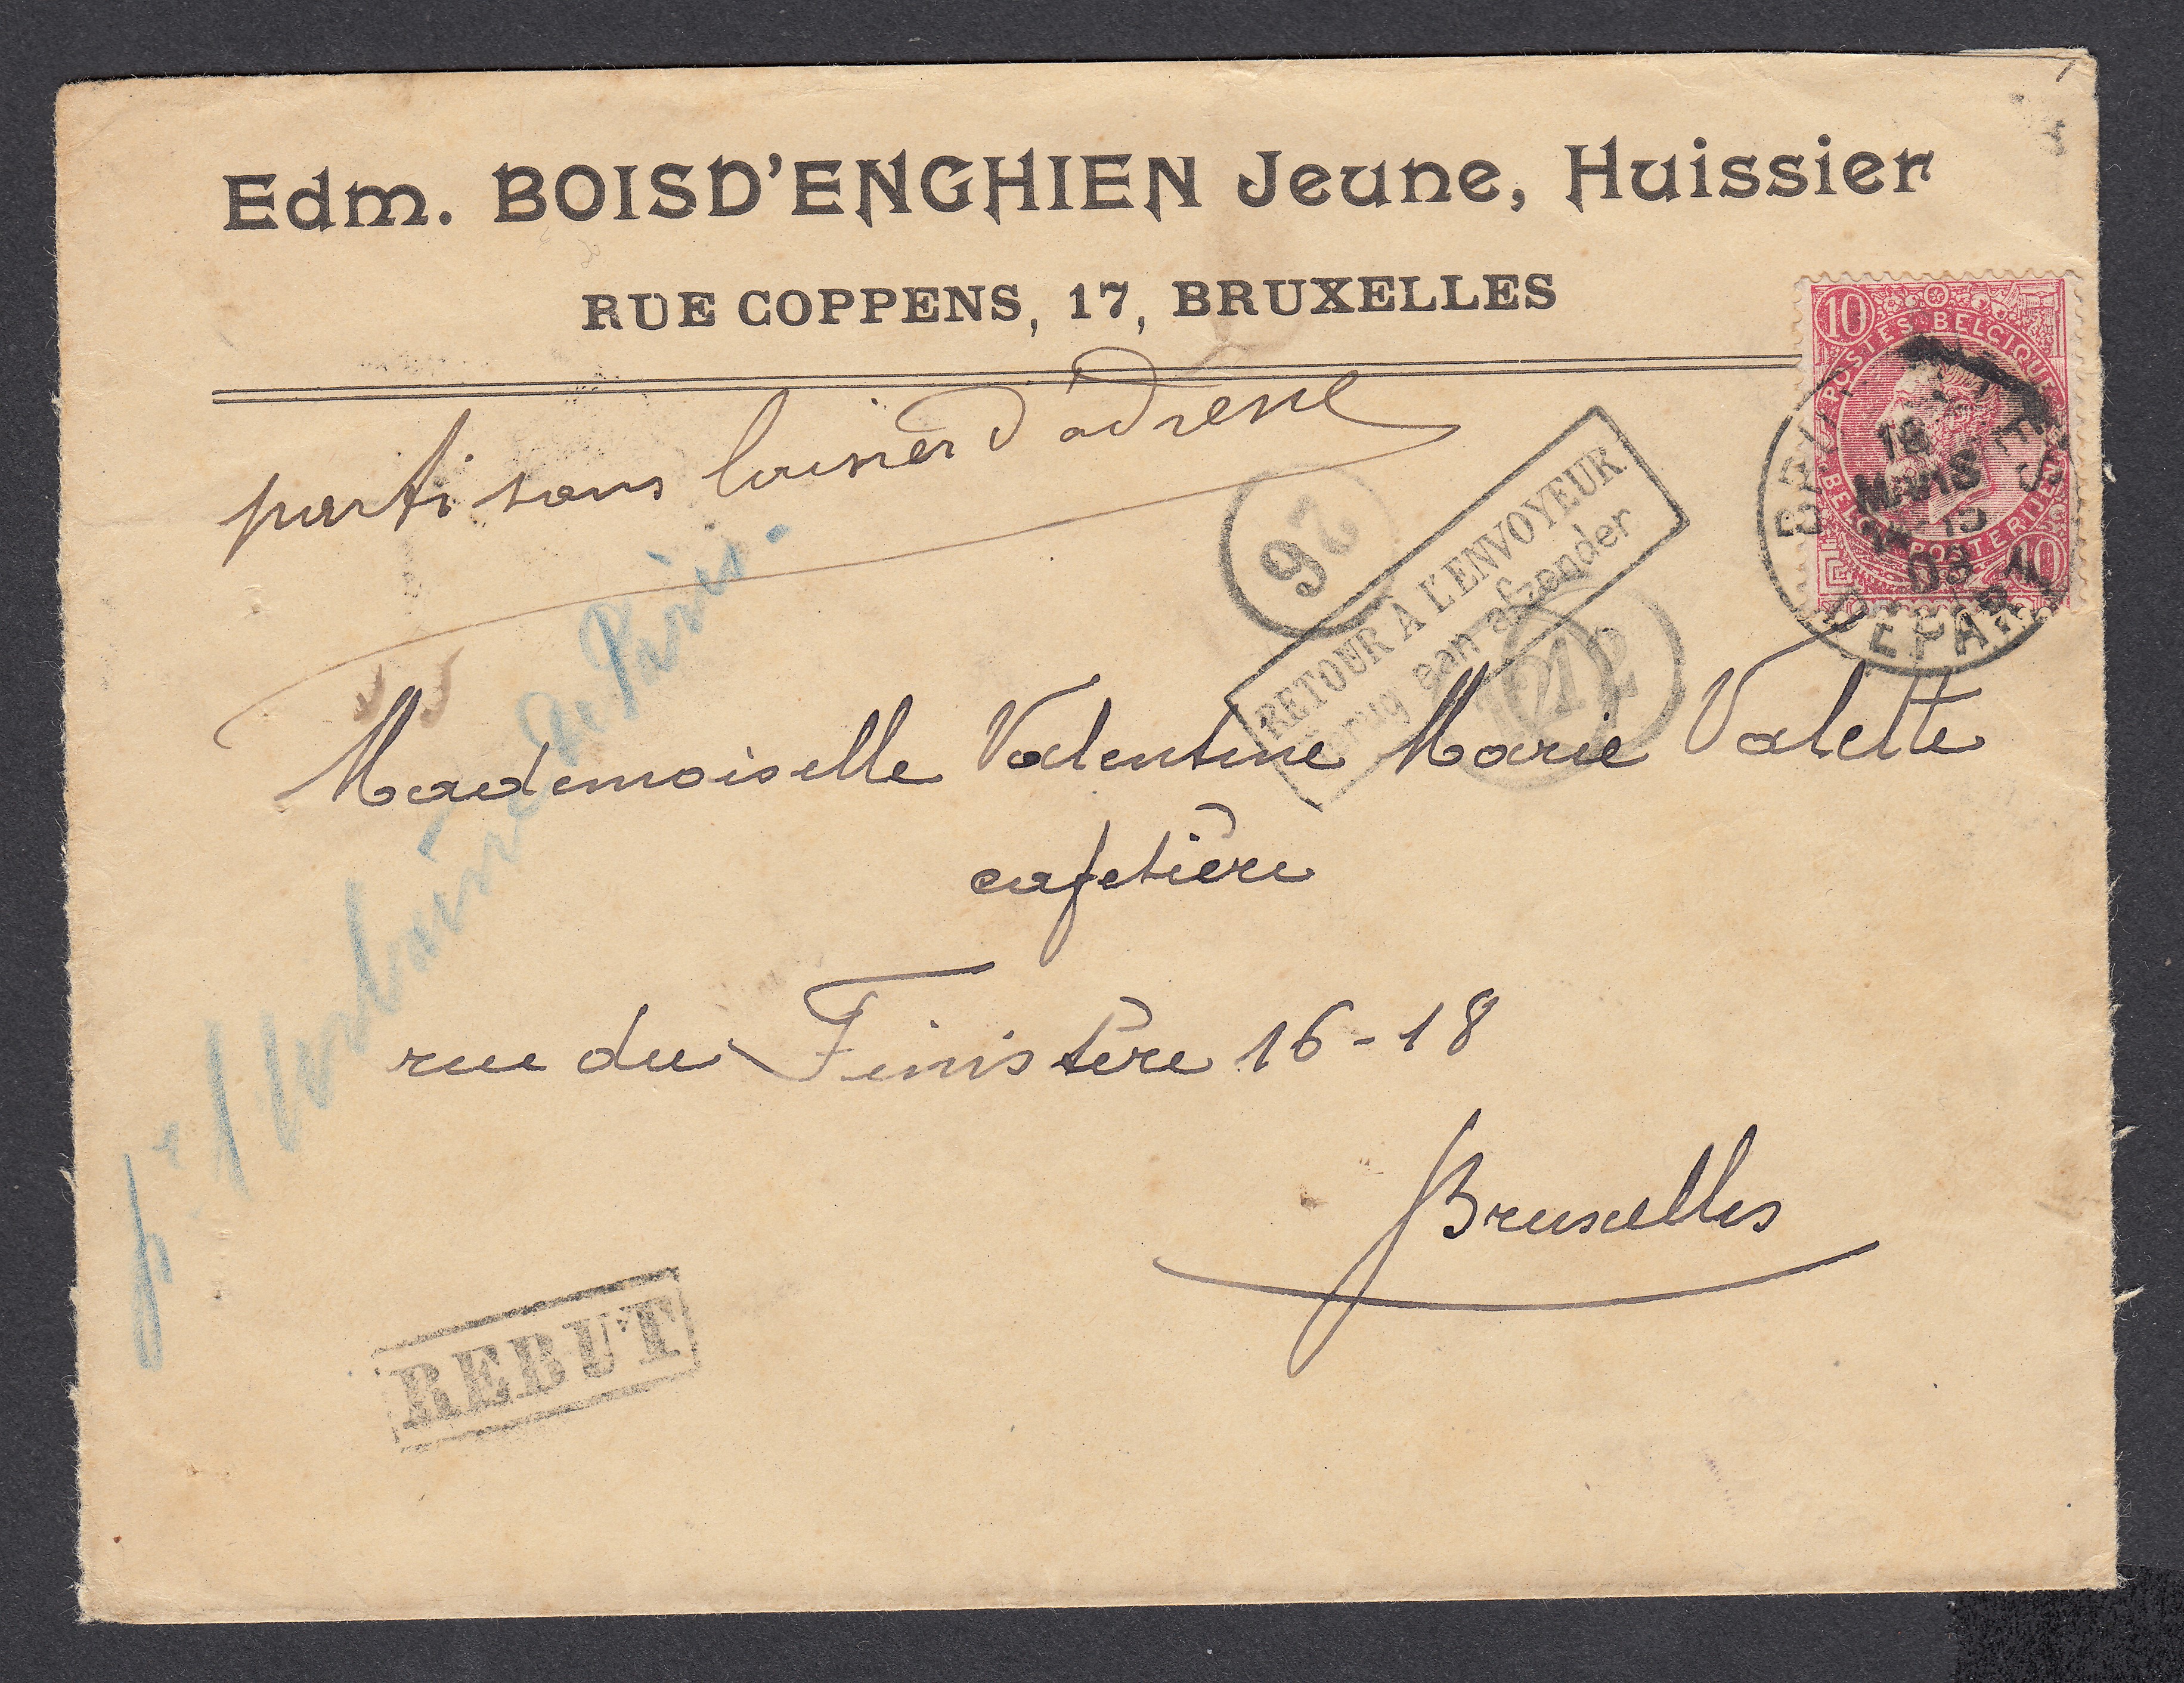 Edm. BOISD'ENGHIEN Jeune, Huissier
RUE COPPENS, 17, BRUXELLES
10 10
POSTES BELGIQUE
BELGIË POSTERIJEN
BRUXELLES
18
MARS
03
DEPART
parti sans laisser d'adresse
26
RETOUR À L'ENVOYEUR
Terug aan afzender
212
Mademoiselle Valentine Marie Valette
cafetière
rue du Finistère 16-18
Bruxelles
de Paris.
REBUT